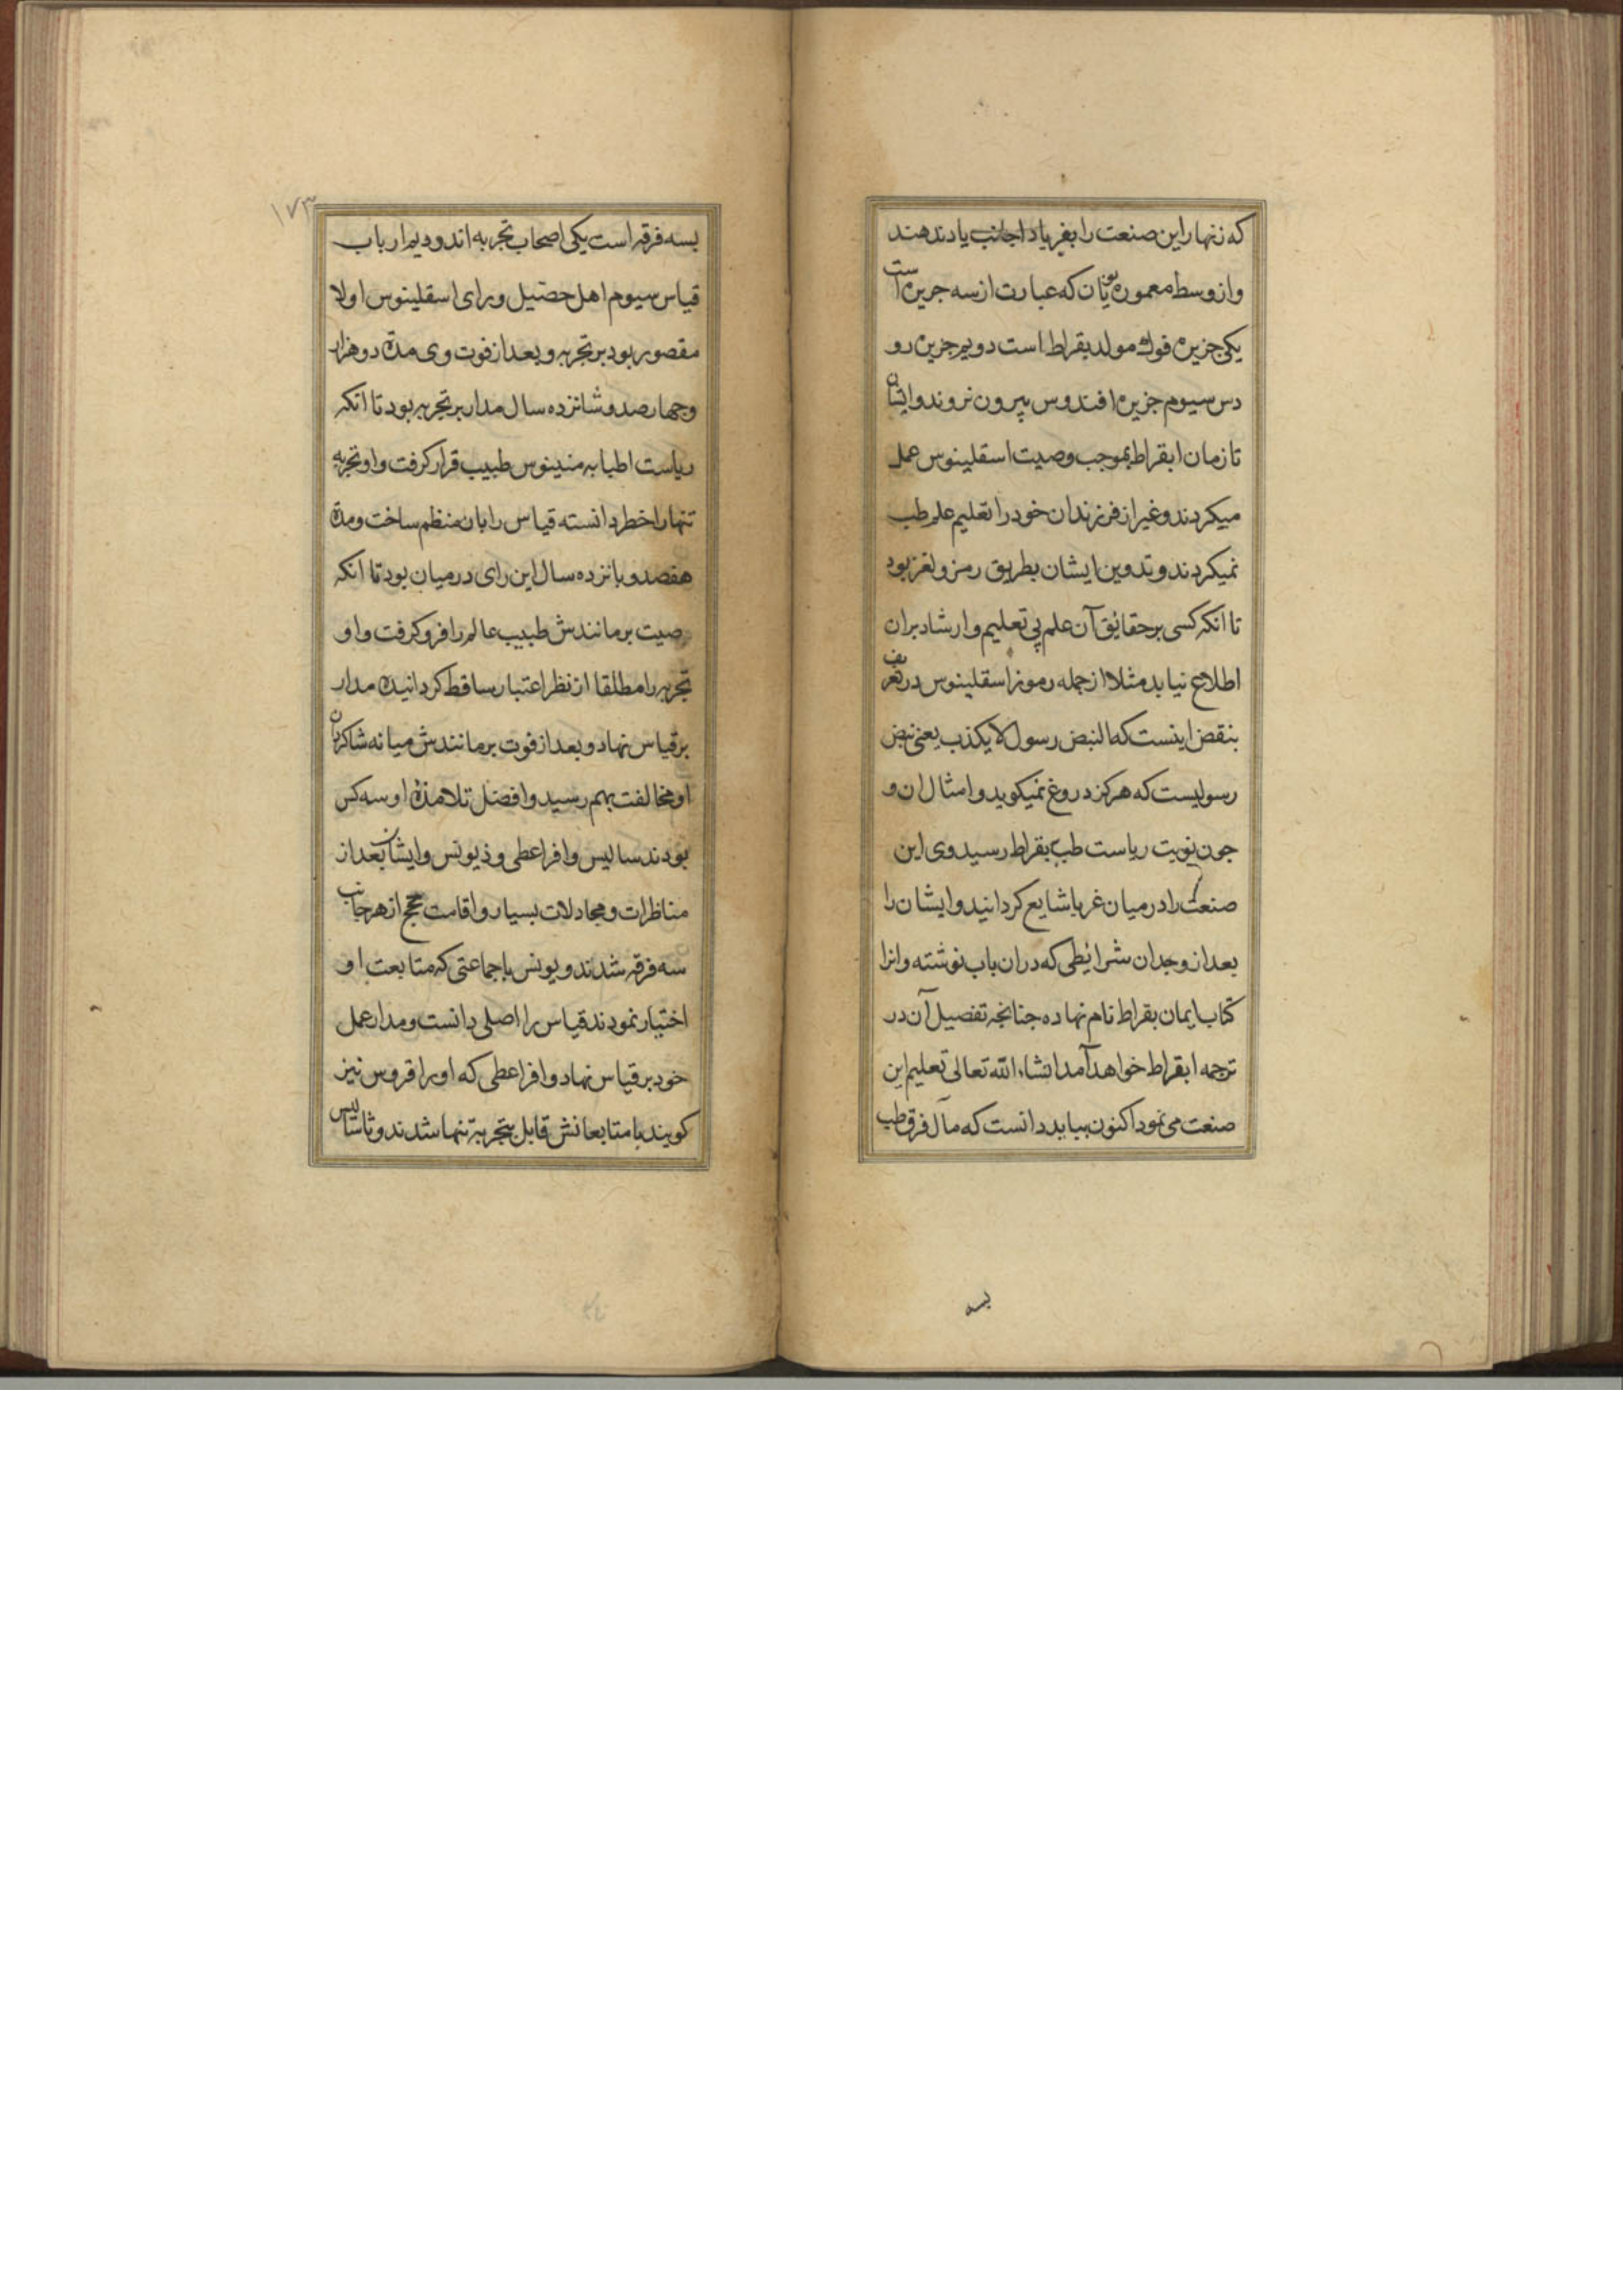 که زنهار این صنعت را بغریا د اجانب یاد ندهند
و از وسط معموره یونان که عبارت از سه جزیره است
یکی جزیره قوله مولد بقراط است دویم جزیره رو
دس سیوم جزیره افندوس بیرون نروند و ایشان
تا زمان ابقراط بموجب وصیت اسقلینوس عمل
میکردند و غیر از فرزندان خود را تعلیم علم طب
نمیکردند و تدوین ایشان بطریق رمز و لغز بود
تا انکه کسی بر حقائق آن علم بی تعلیم و ارشاد بران
اطلاع نیابد مثلا از جمله رموز اسقلینوس در تعریف
بنقض اینست که النبض رسول لا یکذب یعنی نبض
رسولیست که هرکز دروغ نمیکوید و امثال ان و
جون نوبت ریاست طب بقراط رسید وی این
صنعت را در میان غربا شایع کردانید و ایشان را
بعد از وجدان شرائطی که دران باب نوشته و انرا
کتاب ایمان بقراط نام نهاده جنانجه تفصیل آن در
ترجمه ابقراط خواهد آمد انشاء الله تعالی تعلیم این
صنعت می نمود اکنون بباید دانست که مآل فرق طب
بسه
۱۷۳
بسه فرقه است یکی اصحاب تجربه اند و دیم ارباب
قیاس سیوم اهل حضیل و رای اسقلینوس اولا
مقصور بود بر تجربه و بعد از فوت وی مدة دو هزار
و جهار صد و شانزده سال مدار بر تجربه بود تا انکه
ریاست اطبا به مندینوس طبیب قرار کرفت و او تجربه
تنها را خطر دانسته قیاس را بان منظم ساخت و مدة
هفصد و بانزده سال این رای در میان بود تا انکه
صیت برمانندش طبیب عالم را فرو کرفت و او
تجربه را مطلقا از نظر اعتبار ساقط کردانیده مدار
بر قیاس نهاد و بعد از فوت برمانندش میانه شاکردان
او مخالفت بهم رسید و افضل تلامذه او سه کس
بودند سالیس و افراعطی و ذیونس و ایشان بعد از
مناظرات و مجادلات بسیار و اقامت حجج از هر جانب
سه فرقه شدند و یونس با جماعتی که متابعت او
اختیار نمودند قیاس را اصلی دانست و مدار عمل
خود بر قیاس نهاد و افراعطی که او را قروس نیز
کویند با متابعانش قایل بتجربة تنها شدند و ثاسالیس